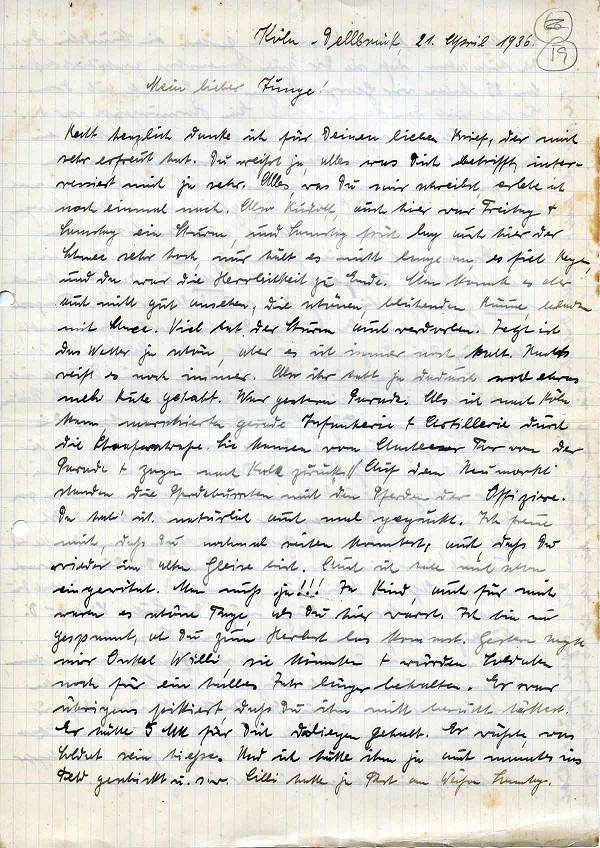 Köln-Dellbrück 21. April 1936.
26
19
Mein lieber Junge!
Recht herzlich danke ich für Deinen lieben Brief, der mich
sehr erfreut hat. Du weißt ja, alles was Dich betrifft, inter-
ressiert mich ja sehr. Alles was Du mir schreibst erlebe ich
noch einmal nach. Also Rudolf, auch hier war Freitag +
Samstag ein Sturm, und Samstag früh lag auch hier der
Schnee sehr hoch nur hält es nicht lange an, es fiel Regen
und da war die Herrlichkeit zu Ende. Man konnte es aber
auch nicht gut ansehen, die schönen, blühenden Bäume, beladen
mit Schnee. Viel hat der Sturm auch verdorben. Jetzt ist
das Wetter ja schön, aber es ist immer noch kalt. Nachts
reift es noch immer. Also ihr habt ja dadurch wohl etwas
mehr Ruhe gehabt. War gestern Parade. Als ich nach Köln
kam, marschierten gerade Infanterie + Artillerie durch
die Sie kamen von Tor von der
Parade + zogen nach Kalk zurück. Auf dem Neumarkt
standen die Pferdeburschen mit den Pferden der Offiziere.
Da hab' ich natürlich auch mal geguckt. Ich freue
mich, daß Du nochmal reiten konntest, auch daß Du
wieder im alten Gleise bist. Auch ich habe mich schon
eingewöhnt. Man muß ja!!! Ja Kind, auch für mich
waren es schöne Tage, als Du hier warst. Ich bin nur
gespannt, ob Du zum Herbst los kommst. Gestern sagte
mir Onkel Willi, sie könnten + würden Soldaten
noch für ein halbes Jahr länger behalten. Er war
übrigens pikiert, daß Du ihn nicht besucht hättest.
Er hätte 5 Mk für Dich daliegen gehabt. Er wüßte, was
Soldat sein hieße. Und ich hätte ihm ja auch manches ins
Feld geschickt u.s.w. Cilli hatte ja am Weißen Samstag.